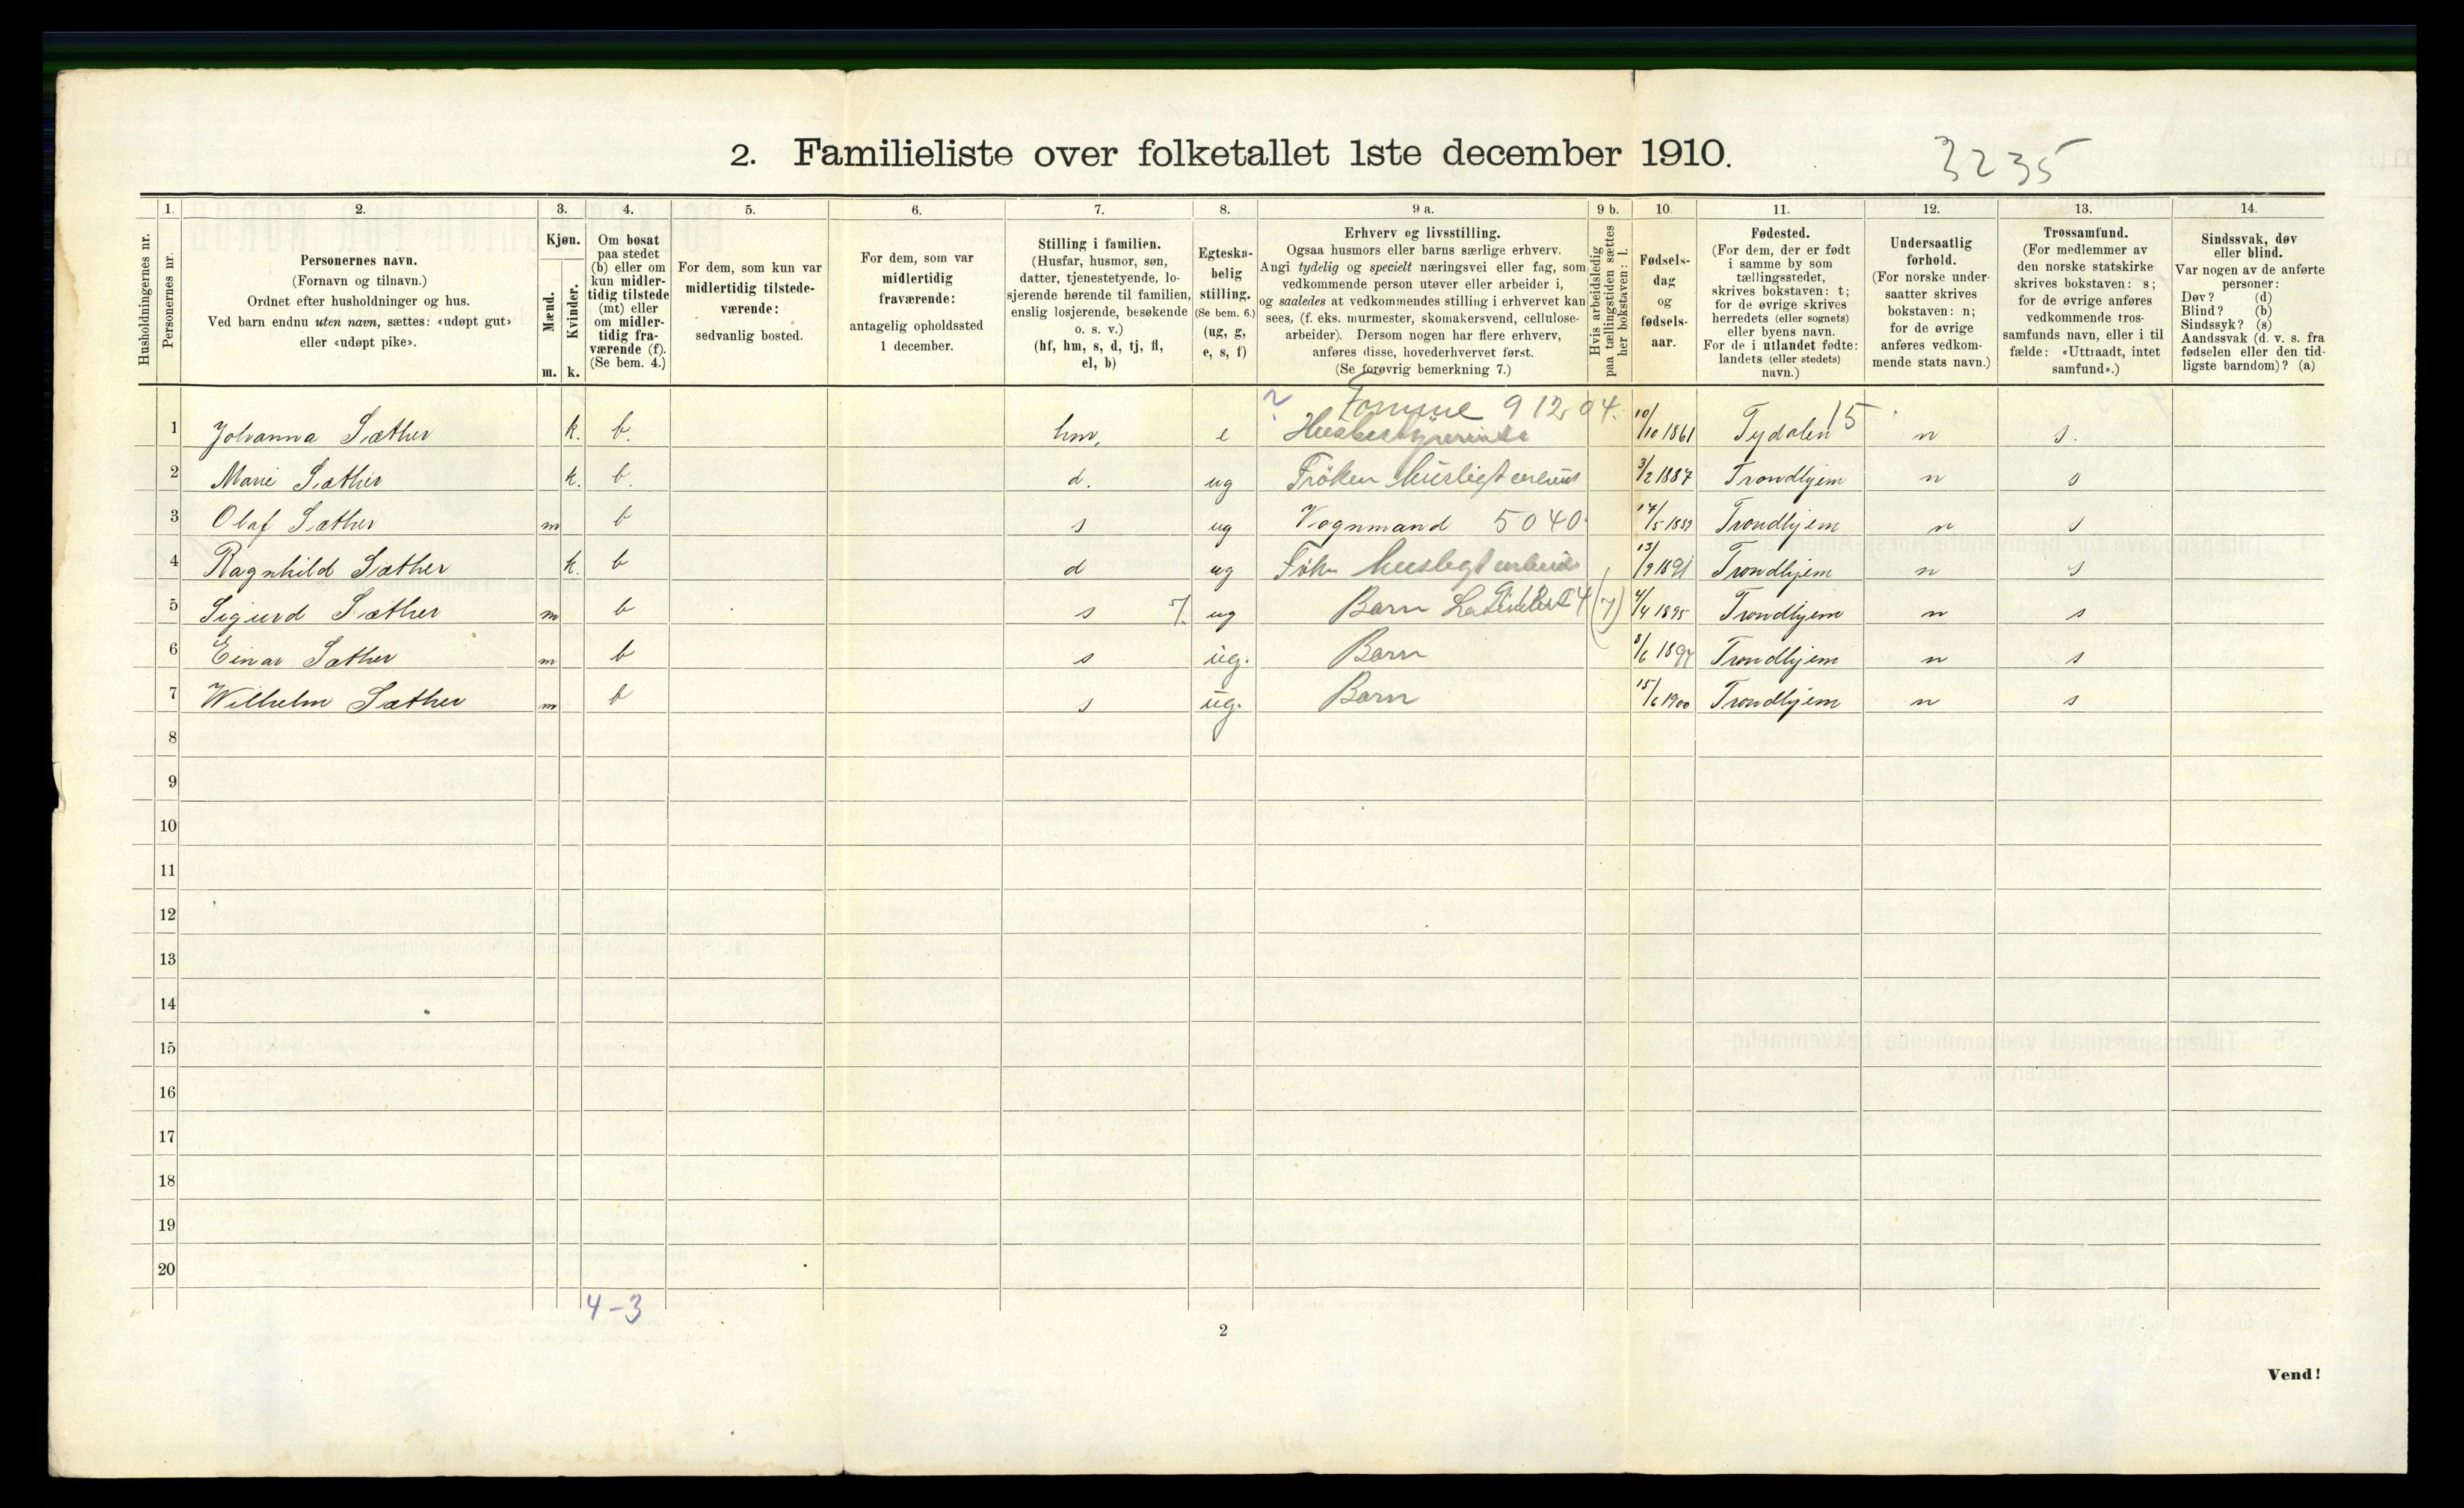 2. Familieliste over folketallet 1ste december 1910.
3235
Husholdningernes nr.
1. Personernes nr.
2. Personernes navn.
(Fornavn og tilnavn.)
Ordnet efter husholdninger og hus.
Ved barn endnu uten navn, sættes: «udøpt gut»
eller «udøpt pike».
3. Kjøn.
Mænd. m.
Kvinder. k.
4. Om bosat
paa stedet
(b) eller om
kun midler-
tidig tilstede
(mt) eller
om midler-
tidig fra-
værende (f).
(Se bem. 4.)
5. For dem, som kun var
midlertidig tilstede-
værende:
sedvanlig bosted.
6. For dem, som var
midlertidig
fraværende:
antagelig opholdssted
1 december.
7. Stilling i familien.
(Husfar, husmor, søn,
datter, tjenestetyende, lo-
sjerende hørende til familien,
enslig losjerende, besøkende
o. s. v.)
(hf, hm, s, d, tj, fl,
el, b)
8. Egteska-
belig
stilling.
(Se bem. 6.)
(ug, g,
e, s, f)
9 a. Erhverv og livsstilling.
Ogsaa husmors eller barns særlige erhverv.
Angi tydelig og specielt næringsvei eller fag, som
vedkommende person utøver eller arbeider i,
og saaledes at vedkommendes stilling i erhvervet kan
sees, (f. eks. murmester, skomakersvend, cellulose-
arbeider). Dersom nogen har flere erhverv,
anføres disse, hovederhvervet først.
(Se forøvrig bemerkning 7.)
9 b. Hvis arbeidsledig
paa tællingstiden sættes
her bokstaven: l.
10. Fødsels-
dag
og
fødsels-
aar.
11. Fødested.
(For dem, der er født
i samme by som
tællingsstedet,
skrives bokstaven: t;
for de øvrige skrives
herredets (eller sognets)
eller byens navn.
For de i utlandet fødte:
landets (eller stedets)
navn.)
12. Undersaatlig
forhold.
(For norske under-
saatter skrives
bokstaven: n;
for de øvrige
anføres vedkom-
mende stats navn.)
13. Trossamfund.
(For medlemmer av
den norske statskirke
skrives bokstaven: s;
for de øvrige anføres
vedkommende tros-
samfunds navn, eller i til
fælde: «Uttraadt, intet
samfund».)
14. Sindssvak, døv
eller blind.
Var nogen av de anførte
personer:
Døv? (d)
Blind? (b)
Sindssyk? (s)
Aandssvak (d. v. s. fra
fødselen eller den tid-
ligste barndom)? (a)
? Formue 9 12 04. 15
1 Johanna Sæther k. b. hm, e Husbestyrerinde 10/10 1861 Tydalen n s.
2 Marie Sæther k. b. d. ug Frøken husligt arbeid 3/2 1887 Trondhjem n s
3 Olaf Sæther m b s ug Vognmand 5040 14/5 1889 Trondhjem n s
4 Ragnhild Sæther k. b d ug husligt arbeide 13/9 1891 Trondhjem n s
5 Sigurd Sæther m b s ug Barn 4/4 1895 Trondhjem n s
6 Einar Sæther m b s ug. Barn 8/6 1897 Trondhjem n s
7 Wilhelm Sæther m b s ug. Barn 15/6 1900 Trondhjem n s
8
9
10
11
12
13
14
15
16
17
18
19
20
4-3
2
Vend!